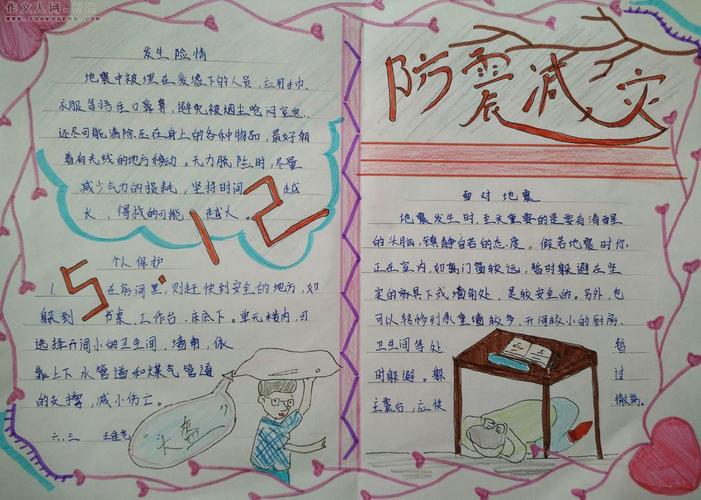 作文人网
www.zuowenren.com
发生险情
地震中被埋在废墟下的人员，应用手巾、
衣服等捂住口鼻鼻，避免被烟尘呛闷窒息，
还尽可能清除压在身上的各种物品，最好朝
着有光线的地方移动。无力脱险用，尽量
减少气力的损耗，坚持时间 越
长，得救的可能 越大。
5.12
个人保护
1 在房间里，则赶快到安全的地方，如
躲到 书桌、工作台、床底下。单元楼内，可
选择开间小的卫生间、墙角，依
靠上下水管道和煤气管道
的支撑，减小伤亡。
六、三 王
"头盔"
防震减灾
面对地震
地震发生时，至关重要的是要有清醒
的头脑，镇静自若的态度。假若地震时你
正在室内，如离门窗较远，暂时躲避在坚
实的家具下或墙角处，是较安全的。另外，也
可以转移到承重墙较多、开间较小的厨房、
卫生间等处 暂
时躲避。躲 过
主震后，应快 撤离。